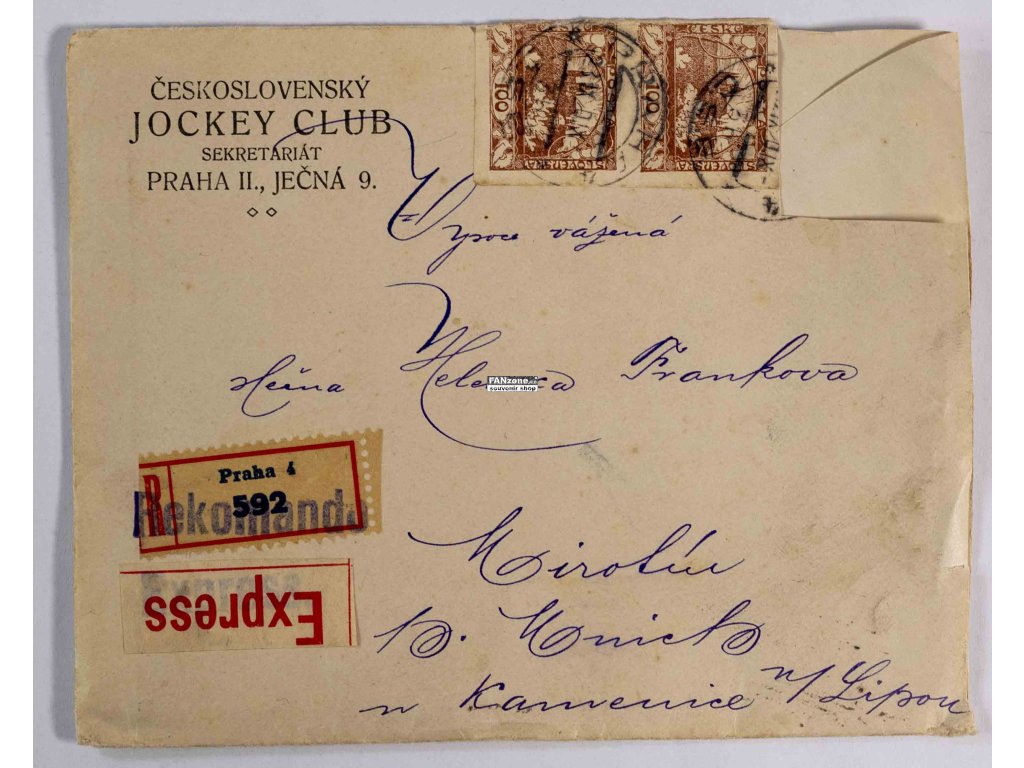 ČESKOSLOVENSKÝ
JOCKEY CLUB
SEKRETARIÁT
PRAHA II., JEČNÁ 9.
100
100
ČESKO
SLOVENSKÁ
SLOVENSKÁ
Vysoce vážená
slečna Helena Frankova
FANzone.cz
souvenir shop
R
Praha 4
592
Rekomando
Express
Express
Mirotín
p. Mnich
u Kamenice n/Lipou